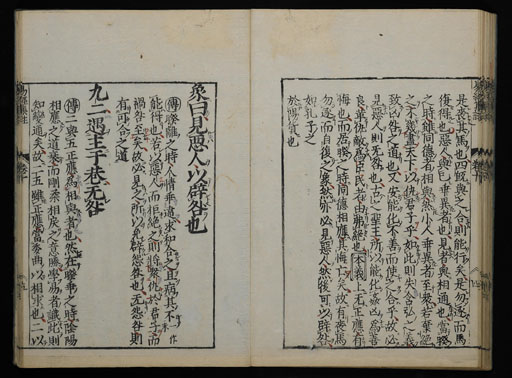 是喪其馬也四既與之合則能行矣是勿逐而馬
復得也惡人與己乖異者也見者與相通也當睽
之時雖同德者相與然小人乖異者至衆若棄絕
之不幾盡天下以仇君子乎如此則失含弘之義
致凶咎之道也又安能化不善而使之合乎故必
見惡人則无咎也古之聖王所以能化姦凶爲善
良革仇敵爲臣民者由弗絕也本義上无正應有
悔也而居睽之時同德相應其悔亡矣故有喪馬
勿逐而自復之象然亦必見惡人然後可以辟咎
如孔子之
於陽貨也
象曰見惡人以辟咎也
傳睽離之時人情乖違求和合之且病其不
能得也若以惡人而拒絕之則將衆仇於君子而
禍咎至矣故必見之所以免辟怨咎也无怨咎則
有可合之道
九二遇主于巷无咎
傳二與五正應爲相與者也然在睽乖之時陰陽
相應之道衰而剛柔相戾之意勝學易者識此則
知變通矣故二五雖正應當委曲以相求也二以